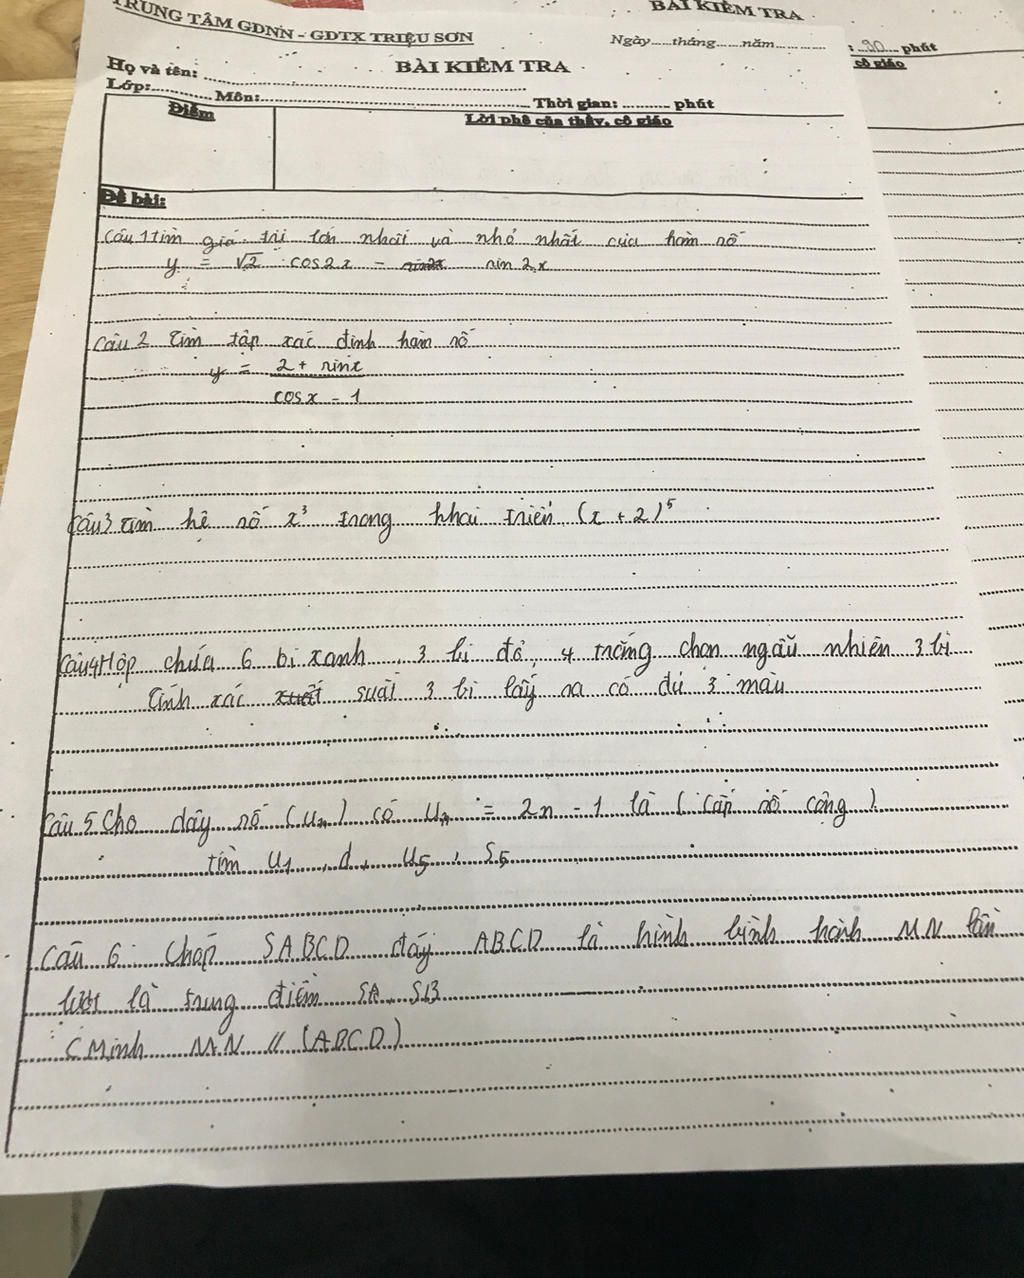 TRUNG TÂM GDNN - GDTX TRIỆU SƠN
BÀI KIỂM TRA
Ngày......tháng......năm............
: 90 phút
cô giáo
Họ và tên: ........................
BÀI KIỂM TRA
Lớp:............ Môn:........................ Thời gian: .......... phút
Điểm
Lời phê của thầy, cô giáo
Đề bài:
Câu 1 Tìm giá trị lớn nhất và nhỏ nhất của hàm số
y = √2 cos2x - sin 2x
Câu 2 Tìm tập xác định hàm số
y = 2 + sinx
cosx - 1
Câu 3 Tìm hệ số x³ trong khai triển (x + 2)⁵
Câu 4 Hộp chứa 6 bi xanh, 3 bi đỏ, 4 trắng chọn ngẫu nhiên 3 bi
Tính xác suất 3 bi lấy ra có đủ 3 màu
Câu 5 Cho dãy số (Un) có Un = 2n - 1 là (cấp số cộng)
Tìm U1, d, U5, S5
Câu 6: Chóp SABCD đáy ABCD là hình bình hành M.N lần
lượt là trung điểm SA, SB
C Minh M.N // (ABCD)